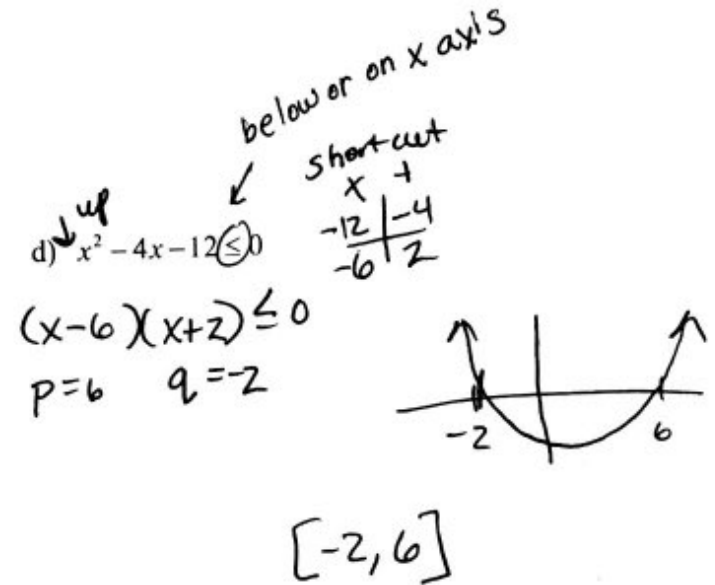 below or on x axis
short cut
x +
-12 | -4
-6 | 2
up
d) x² – 4x – 12 ≤ 0
(x-6)(x+2) ≤ 0
p=6 q=-2
-2 6
[-2, 6]